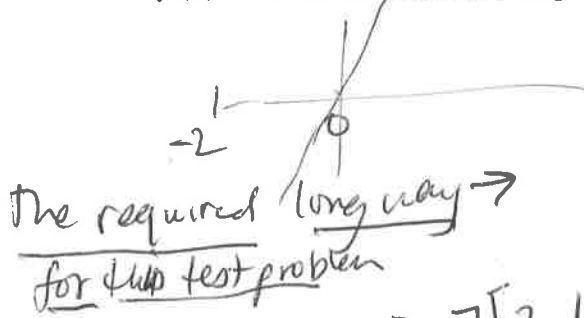 -2
0
The required long way →
for this test problem